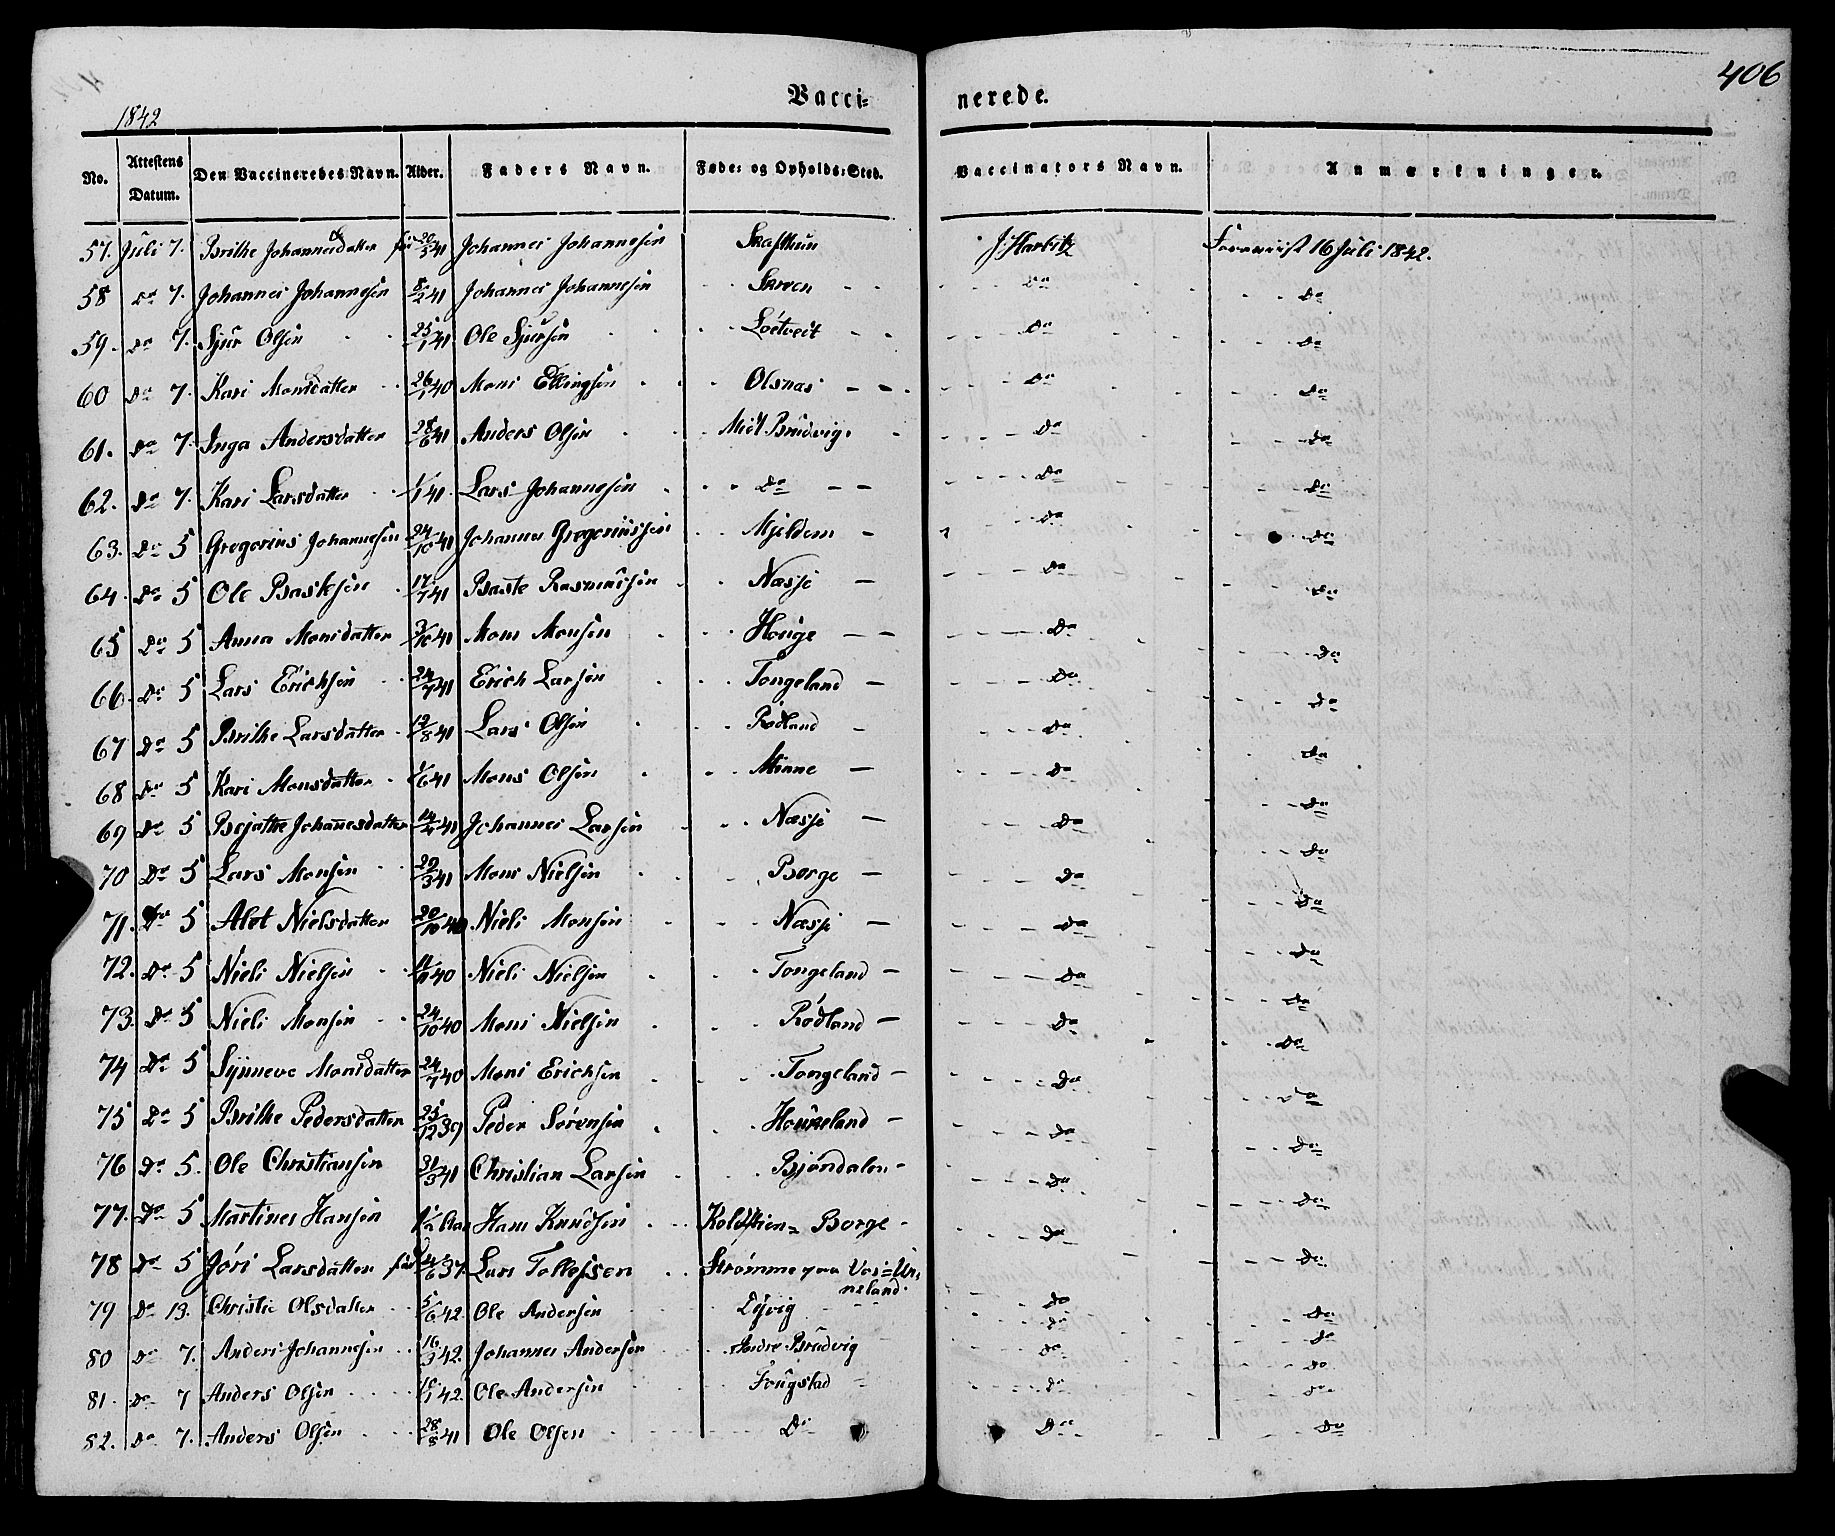 406
Vacci= nerede.
1842
No. Attestens Datum. Den Vaccineredes Navn. Alder. Faders Navn. Føde- og Opholds-Sted. Vaccinators Navn. Anmærkninger.
57. Juli 7. Brithe Johannesdatter 41 Johannes Johannesen J. Harbitz Foreviist 16 Juli 1842.
58 Do 7. Johannes Johannesen 41 Johannes Johannesen Skreen Do Do
59. Do 7. Sjur Olsen 25/1 41 Ole Sjursen Loetveit Do Do
60 Do 7. Kari Monsdatter 26/1 40 Mons Ellingsen Olsnæs Do Do
61. Do 7. Inga Andersdatter 28/6 41 Anders Olsen Midt Brudvig Do Do
62. Do 7. Kari Larsdatter 1/1 41 Lars Johannesen Do Do Do
63. Do 5 Gregorius Johannesen 24/10 41 Johannes Gregoriussen Mjeldem Do Do
64. Do 5 Ole Bastesen 17/7 41 Baste Rasmussen Næsse Do Do
65 Do 5 Anna Monsdatter 3/10 41 Mons Monsen Houge Do Do
66. Do 5 Lars Erichsen 24/7 41 Erich Larsen Tongeland Do Do
67 Do 5 Brithe Larsdatter 12/8 41 Lars Olsen Rødland Do Do
68 Do 5 Kari Monsdatter 1/6 41 Mons Olsen Minne Do Do
69 Do 5 Johannesdatter 41 Johannes Larsen Næsse Do Do
70 Do 5 Lars Monsen 29/3 41 Mons Nielsen Borge Do Do
71. Do 5 Alet Nielsdatter 20/10 40 Niels Monsen Næsse Do Do
72. Do 5 Niels Nielsen 40 Niels Nielsen Tongeland Do Do
73. Do 5 Niels Monsen 24/10 40 Mons Nielsen Rødland Do Do
74 Do 5 Synneve Monsdatter 24/7 40 Mons Erichsen Tongeland Do Do
75 Do 5 Brithe Pedersdatter 25/12 39 Peder Sørensen Houkeland Do Do
76 Do 5. Ole Christiansen 31/3 41 Christian Larsen Bjøndalen Do Do
77. Do 5 Martines Hansen Hans Knudsen Borge Do Do
78 Do 5 Jøri Larsdatter 37. Lars Tollefsen Strømme Do Do
79 Do 13. Christie Olsdatter 5/6 42. Ole Andersen Dyvig Do Do
80 Do 7. Anders Johannesen 16/3 42. Johannes Andersen Indre Brudvig Do Do
81. Do 7 Anders Olsen 42. Ole Andersen Fougstad Do Do
82. Do 7. Anders Olsen 28/8 41 Ole Olsen Do Do Do